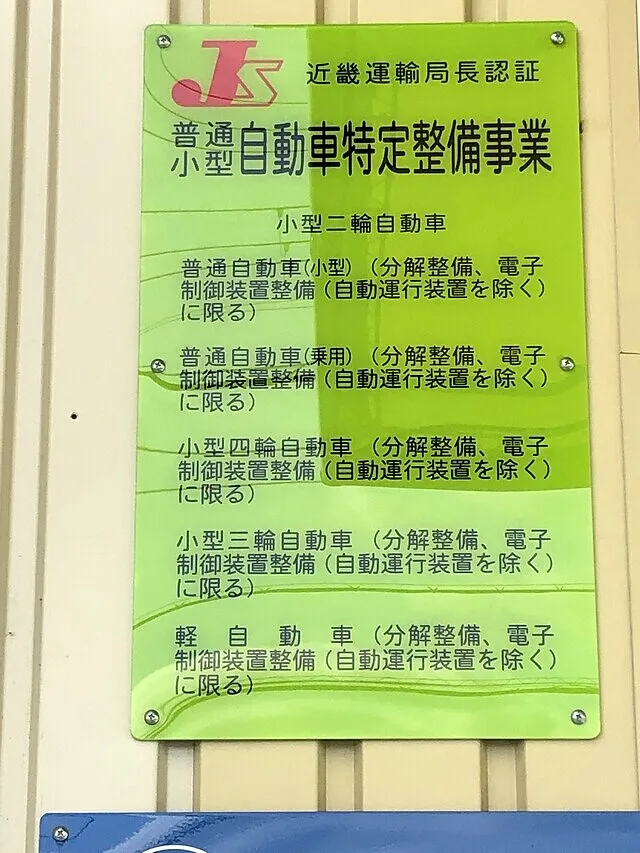 JS 近畿運輸局長認証
普通
小型 自動車特定整備事業
小型二輪自動車
普通自動車(小型)（分解整備、電子
制御装置整備（自動運行装置を除く）
に限る）
普通自動車(乗用)（分解整備、電子
制御装置整備（自動運行装置を除く）
に限る）
小型四輪自動車（分解整備、電子
制御装置整備（自動運行装置を除く）
に限る）
小型三輪自動車（分解整備、電子
制御装置整備（自動運行装置を除く）
に限る）
軽自動車（分解整備、電子
制御装置整備（自動運行装置を除く）
に限る）